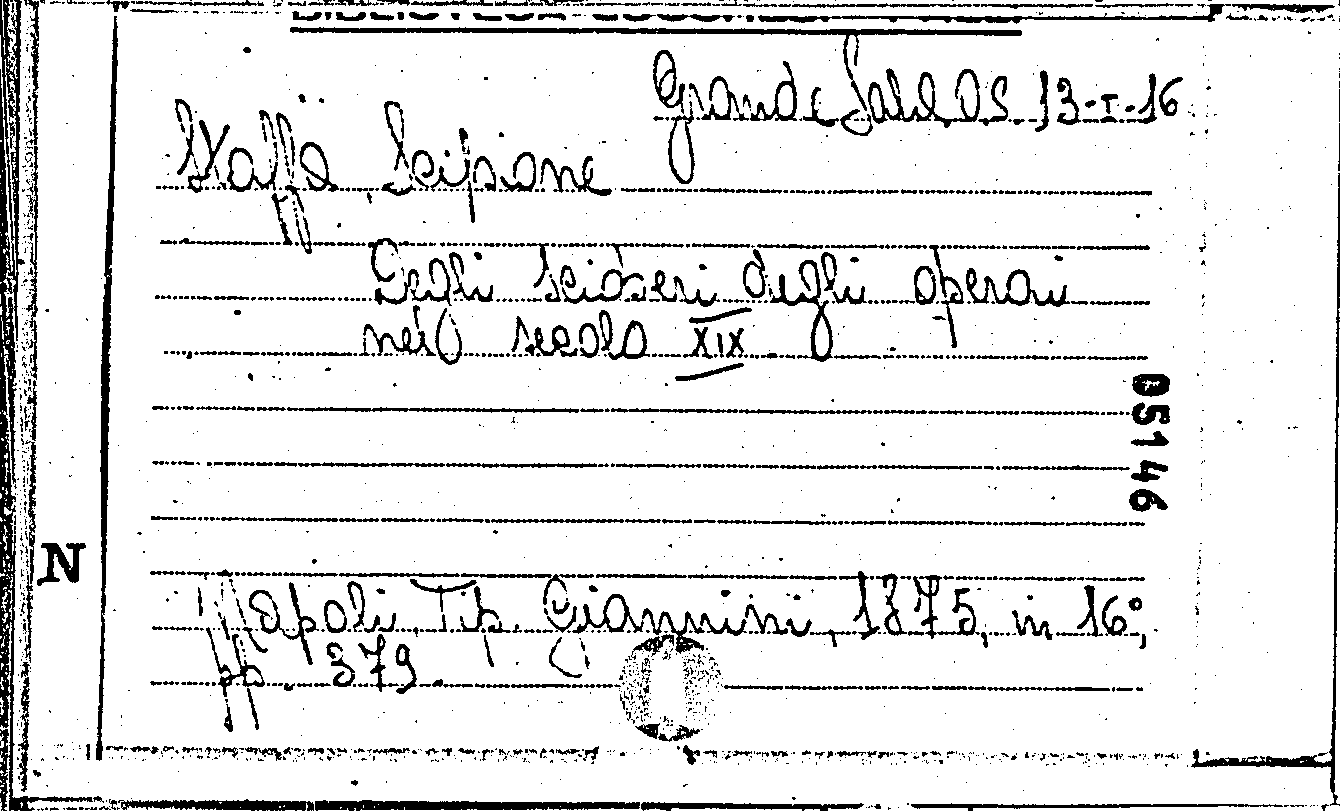 Grande Sala D.S. 13-I-16
Staffa, Scipione
Degli scioperi degli operai
nel secolo XIX
05146
N
Napoli, Tip. Giannini, 1875, in 16°,
pp. 379.